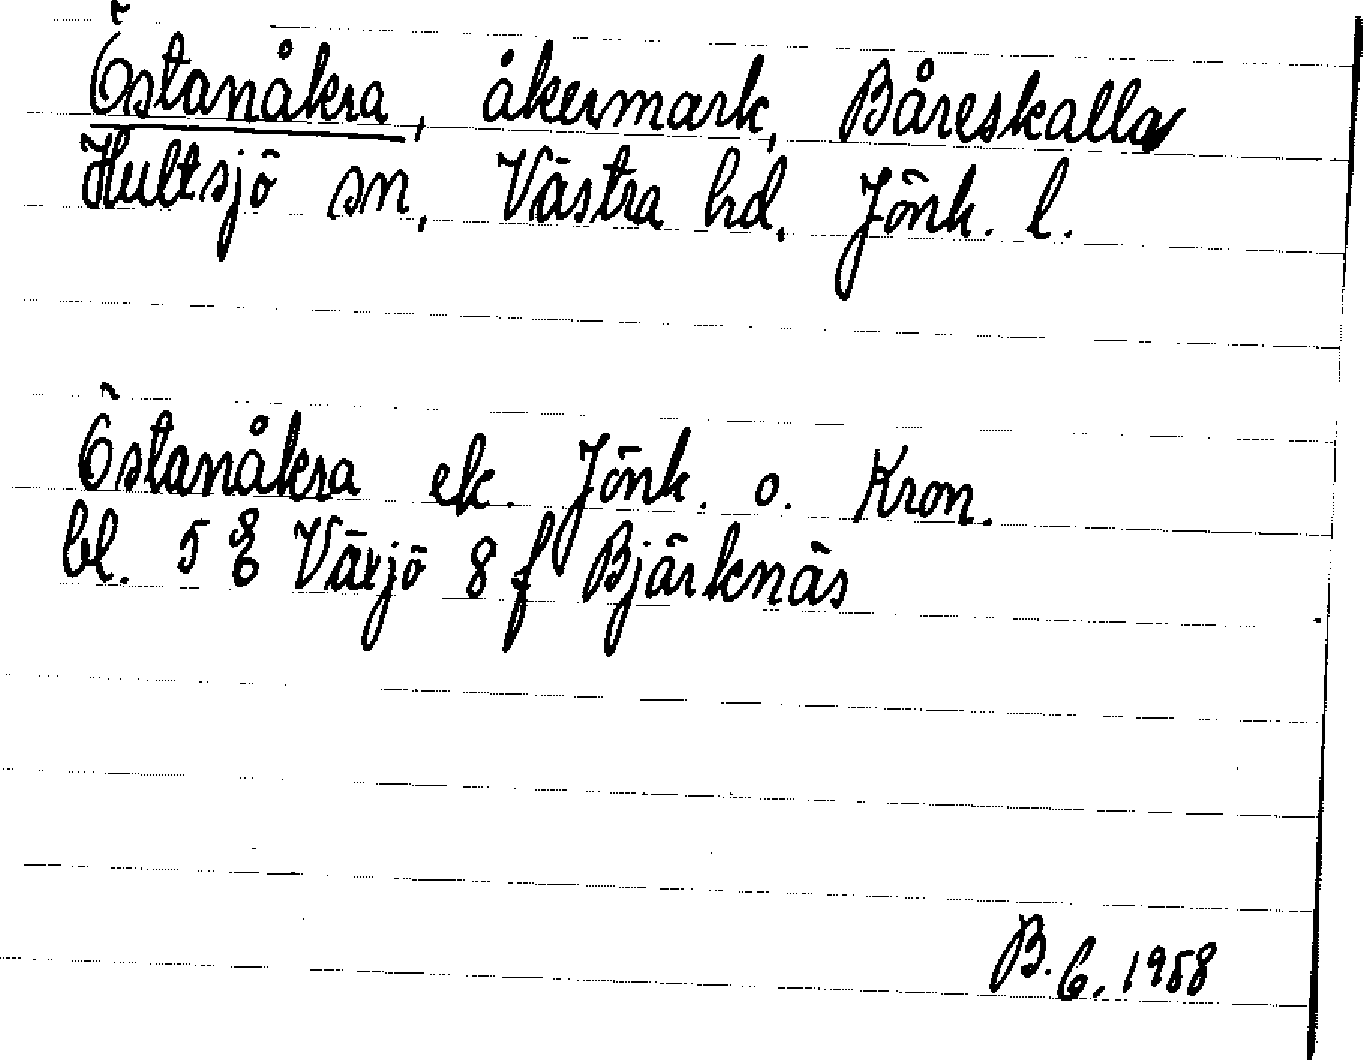 Östanåkra, åkermark, Båreskalla
Hultsjö sn, Västra hd, Jönk. l.
Östanåkra ek. Jönk. o. Kron.
bl. 5 E Växjö 8 f Bjärknäs
B. G. 1958